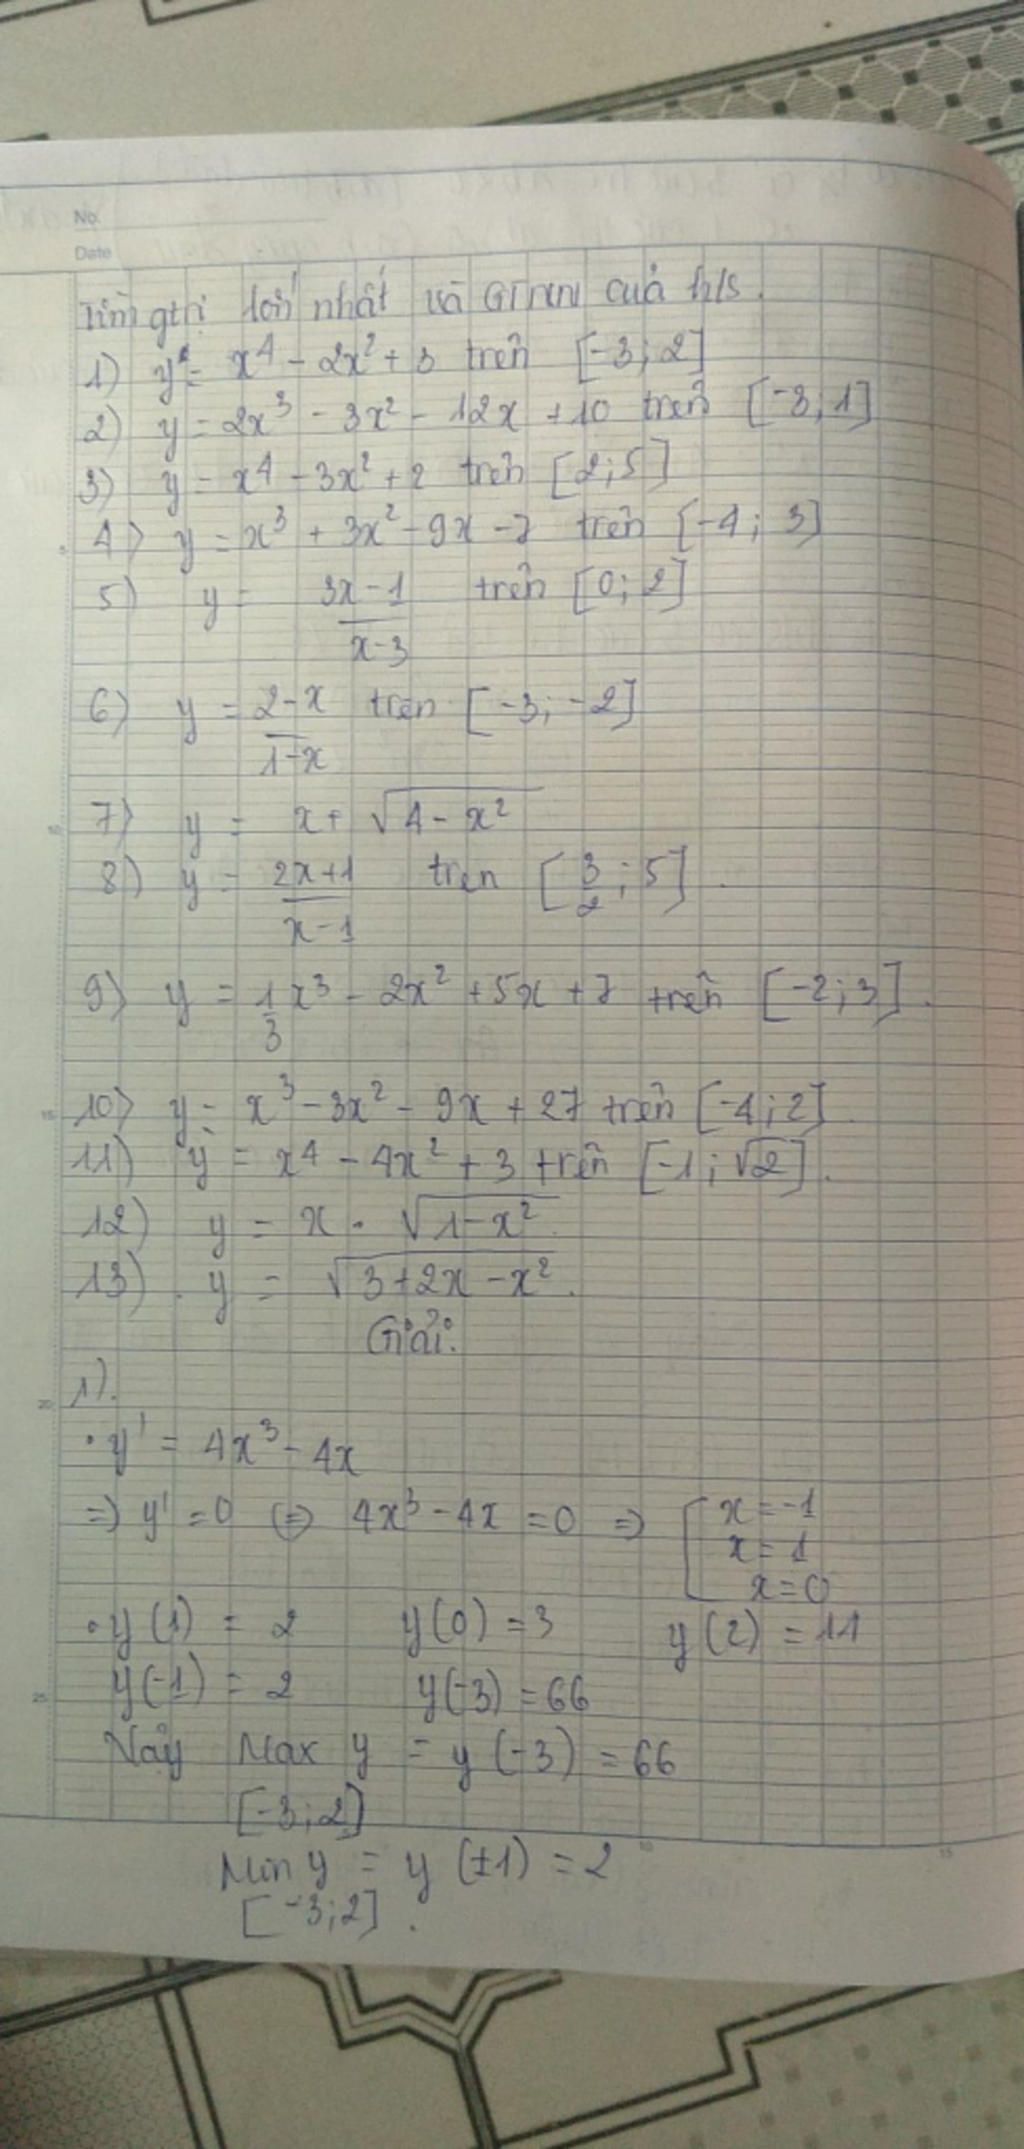 No.
Date
Tìm gtrị lớn nhất và GTNN của h/s.
1) y = x⁴ - 2x² + 3 trên [-3; 2]
2) y = 2x³ - 3x² - 12x + 10 trên [-3; 1]
3) y = x⁴ - 3x² + 2 trên [2; 5]
4) y = x³ + 3x² - 9x - 7 trên [-4; 3]
5) y = (3x-1)/(x-3) trên [0; 2]
6) y = (2-x)/(1-x) trên [-3; -2]
7) y = x + √(4 - x²)
8) y = (2x+1)/(x-1) trên [3/2; 5].
9) y = 1/3 x³ - 2x² + 5x + 7 trên [-2; 3].
10) y = x³ - 3x² - 9x + 27 trên [-4; 2].
11) y = x⁴ - 4x² + 3 trên [-1; √2].
12) y = x . √(1-x²)
13). y = √(3+2x-x²).
Giải:
1).
• y' = 4x³ - 4x
=> y' = 0 <=> 4x³ - 4x = 0 => [ x = -1
x = 1
x = 0
• y(1) = 2 y(0) = 3 y(2) = 11
y(-1) = 2 y(-3) = 66
Vậy Max y = y(-3) = 66
[-3; 2]
Min y = y(±1) = 2
[-3; 2].
5
10
15
20
25
10
15